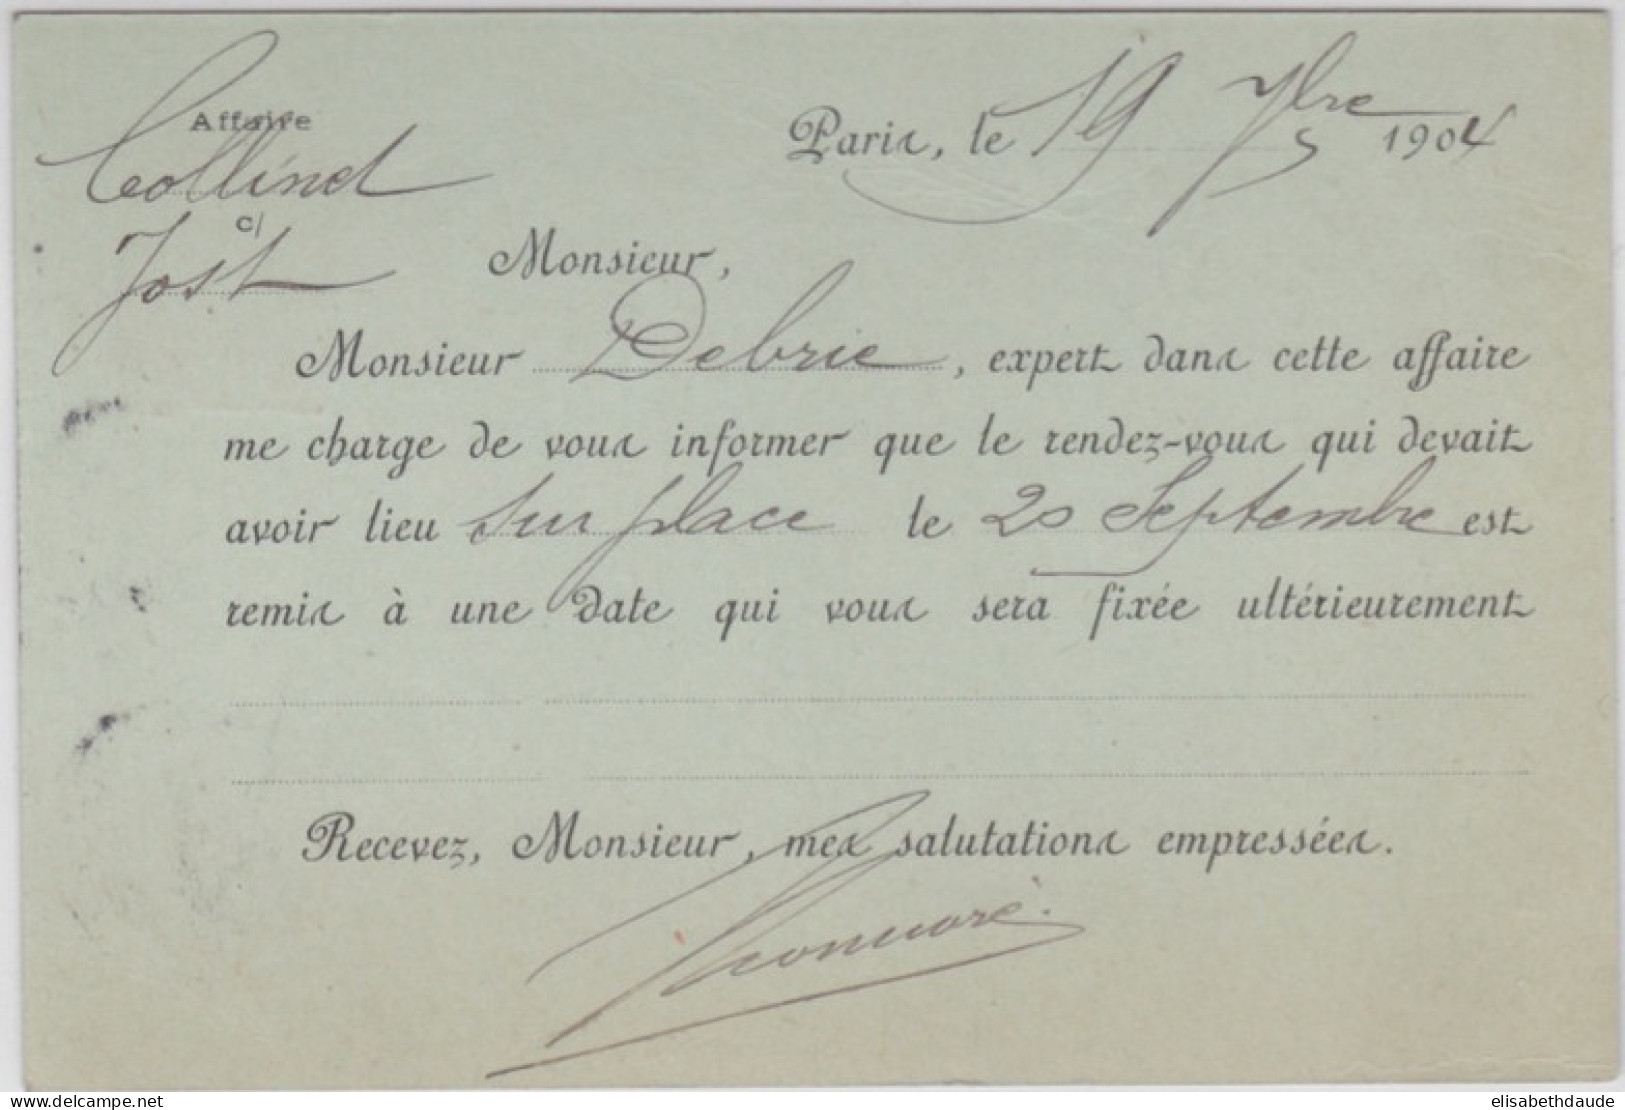 Affaire
Collinet
c/
Jost
Paris, le 19 7bre 1904
Monsieur,
Monsieur Debrie, expert dans cette affaire
me charge de vous informer que le rendez-vous qui devait
avoir lieu sur place le 20 Septembre est
remis à une date qui vous sera fixée ultérieurement
Recevez, Monsieur, mes salutations empressées.
delcampe.net
elisabethdaude